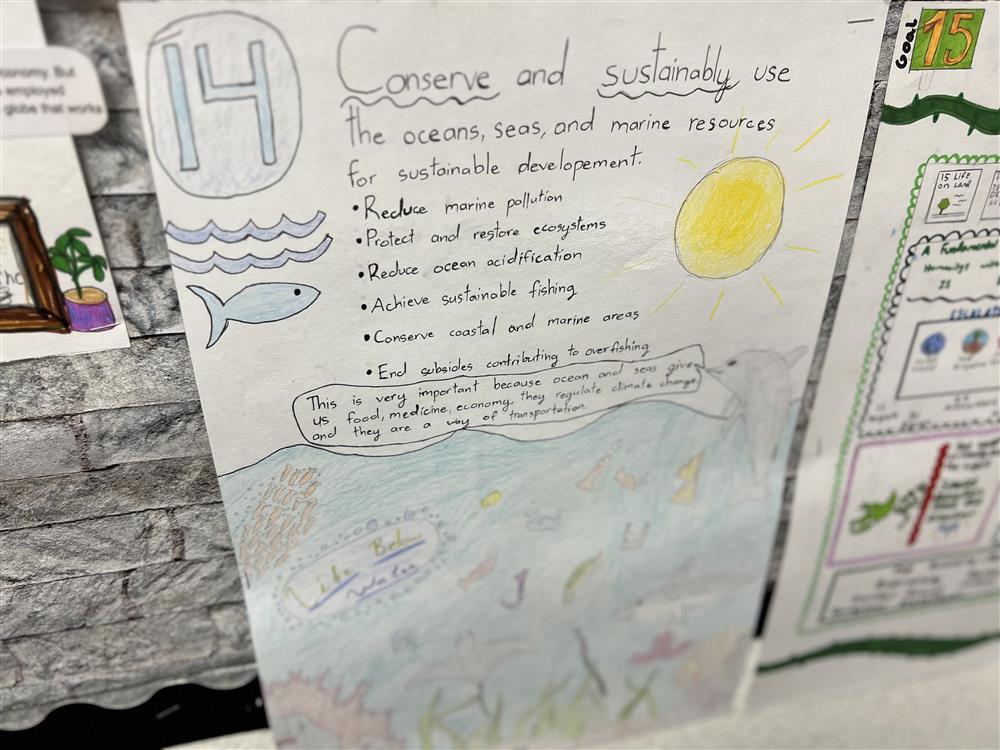 oonomy. But
employed
globe that works
14
Conserve and sustainably use
the oceans, seas, and marine resources
for sustainable developement.
•Reduce marine pollution
•Protect and restore ecosystems
•Reduce ocean acidification
•Achieve sustainable fishing
•Conserve coastal and marine areas
•End subsides contributing to overfishing
This is very important because ocean and seas give
us food, medicine, economy, they regulate climate change
and they are a way of transportation.
Life Below
Water
GOAL 15
15 LIFE
on LAnd
A Fundamental
Humanity's with